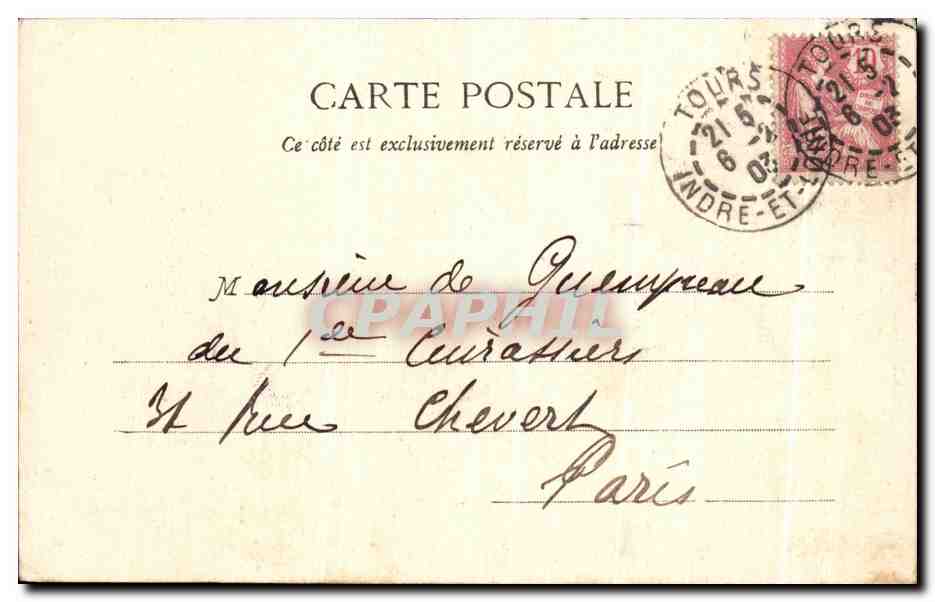 CARTE POSTALE
Ce côté est exclusivement réservé à l'adresse
TOURS
21 5
6 -2
03
INDRE-ET-LOIRE
TOURS
10
21 5
6 -2
03
INDRE-ET-
Monsieur de Quempreau
CPAPHIL
du 1er Cuirassiers
31 rue Chevert
Paris